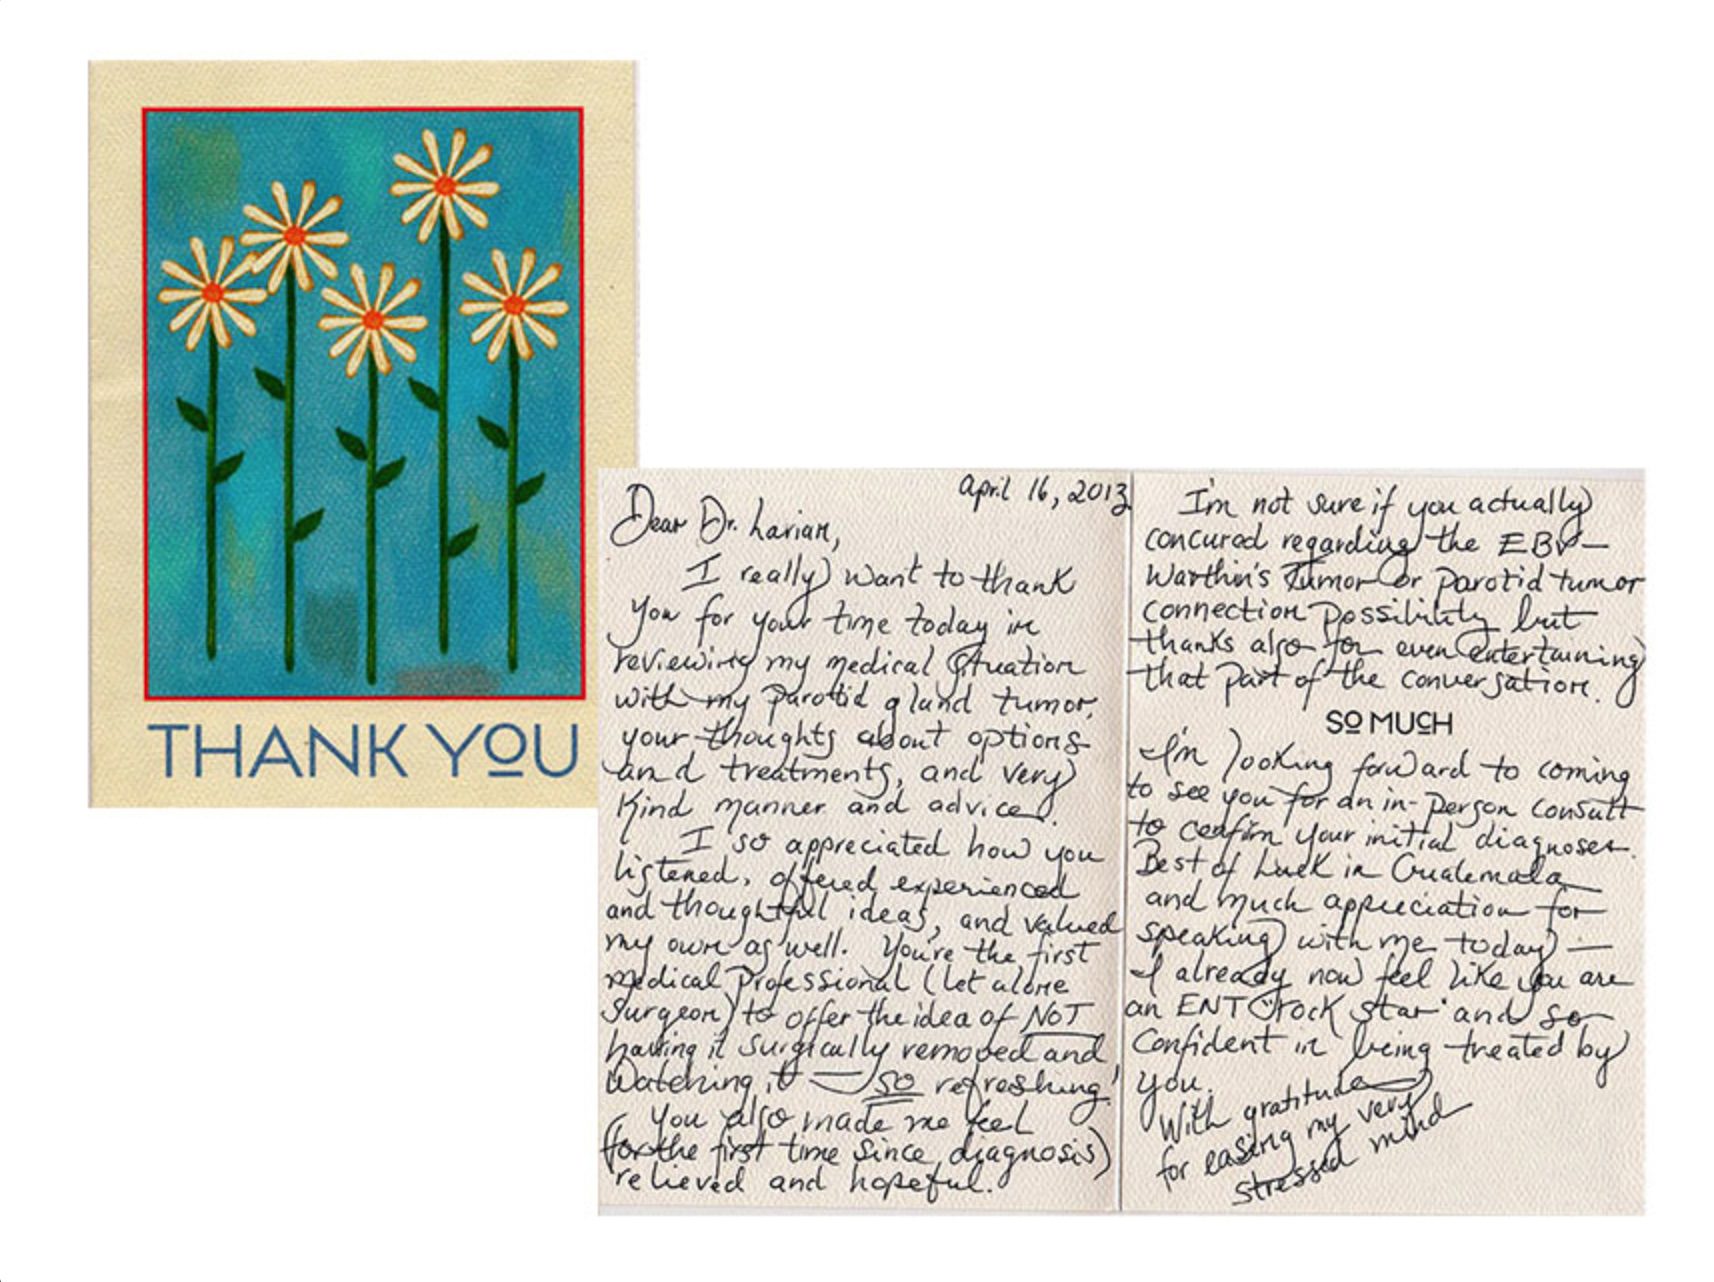 THANK YOU
April 16, 2013
Dear Dr. Larian,
I really want to thank
you for your time today in
reviewing my medical situation
with my parotid gland tumor,
your thoughts about options
and treatments, and very
kind manner and advice.
I so appreciated how you
listened, offered experienced
and thoughtful ideas, and valued
my own as well. You're the first
medical professional (let alone
surgeon) to offer the idea of NOT
having it surgically removed and
watching it — so refreshing!
You also made me feel
(for the first time since diagnosis)
relieved and hopeful.
I'm not sure if you actually
concured regarding the EBV –
Warthin's tumor or parotid tumor
connection possibility but
thanks also for even entertaining
that part of the conversation.
SO MUCH
I'm looking forward to coming
to see you for an in-person consult
to confirm your initial diagnoses.
Best of Luck in Guatemala
and much appreciation for
speaking with me today —
I already now feel like you are
an ENT "rock star" and so
confident in being treated by
you.
With gratitude
for easing my very
stressed mind